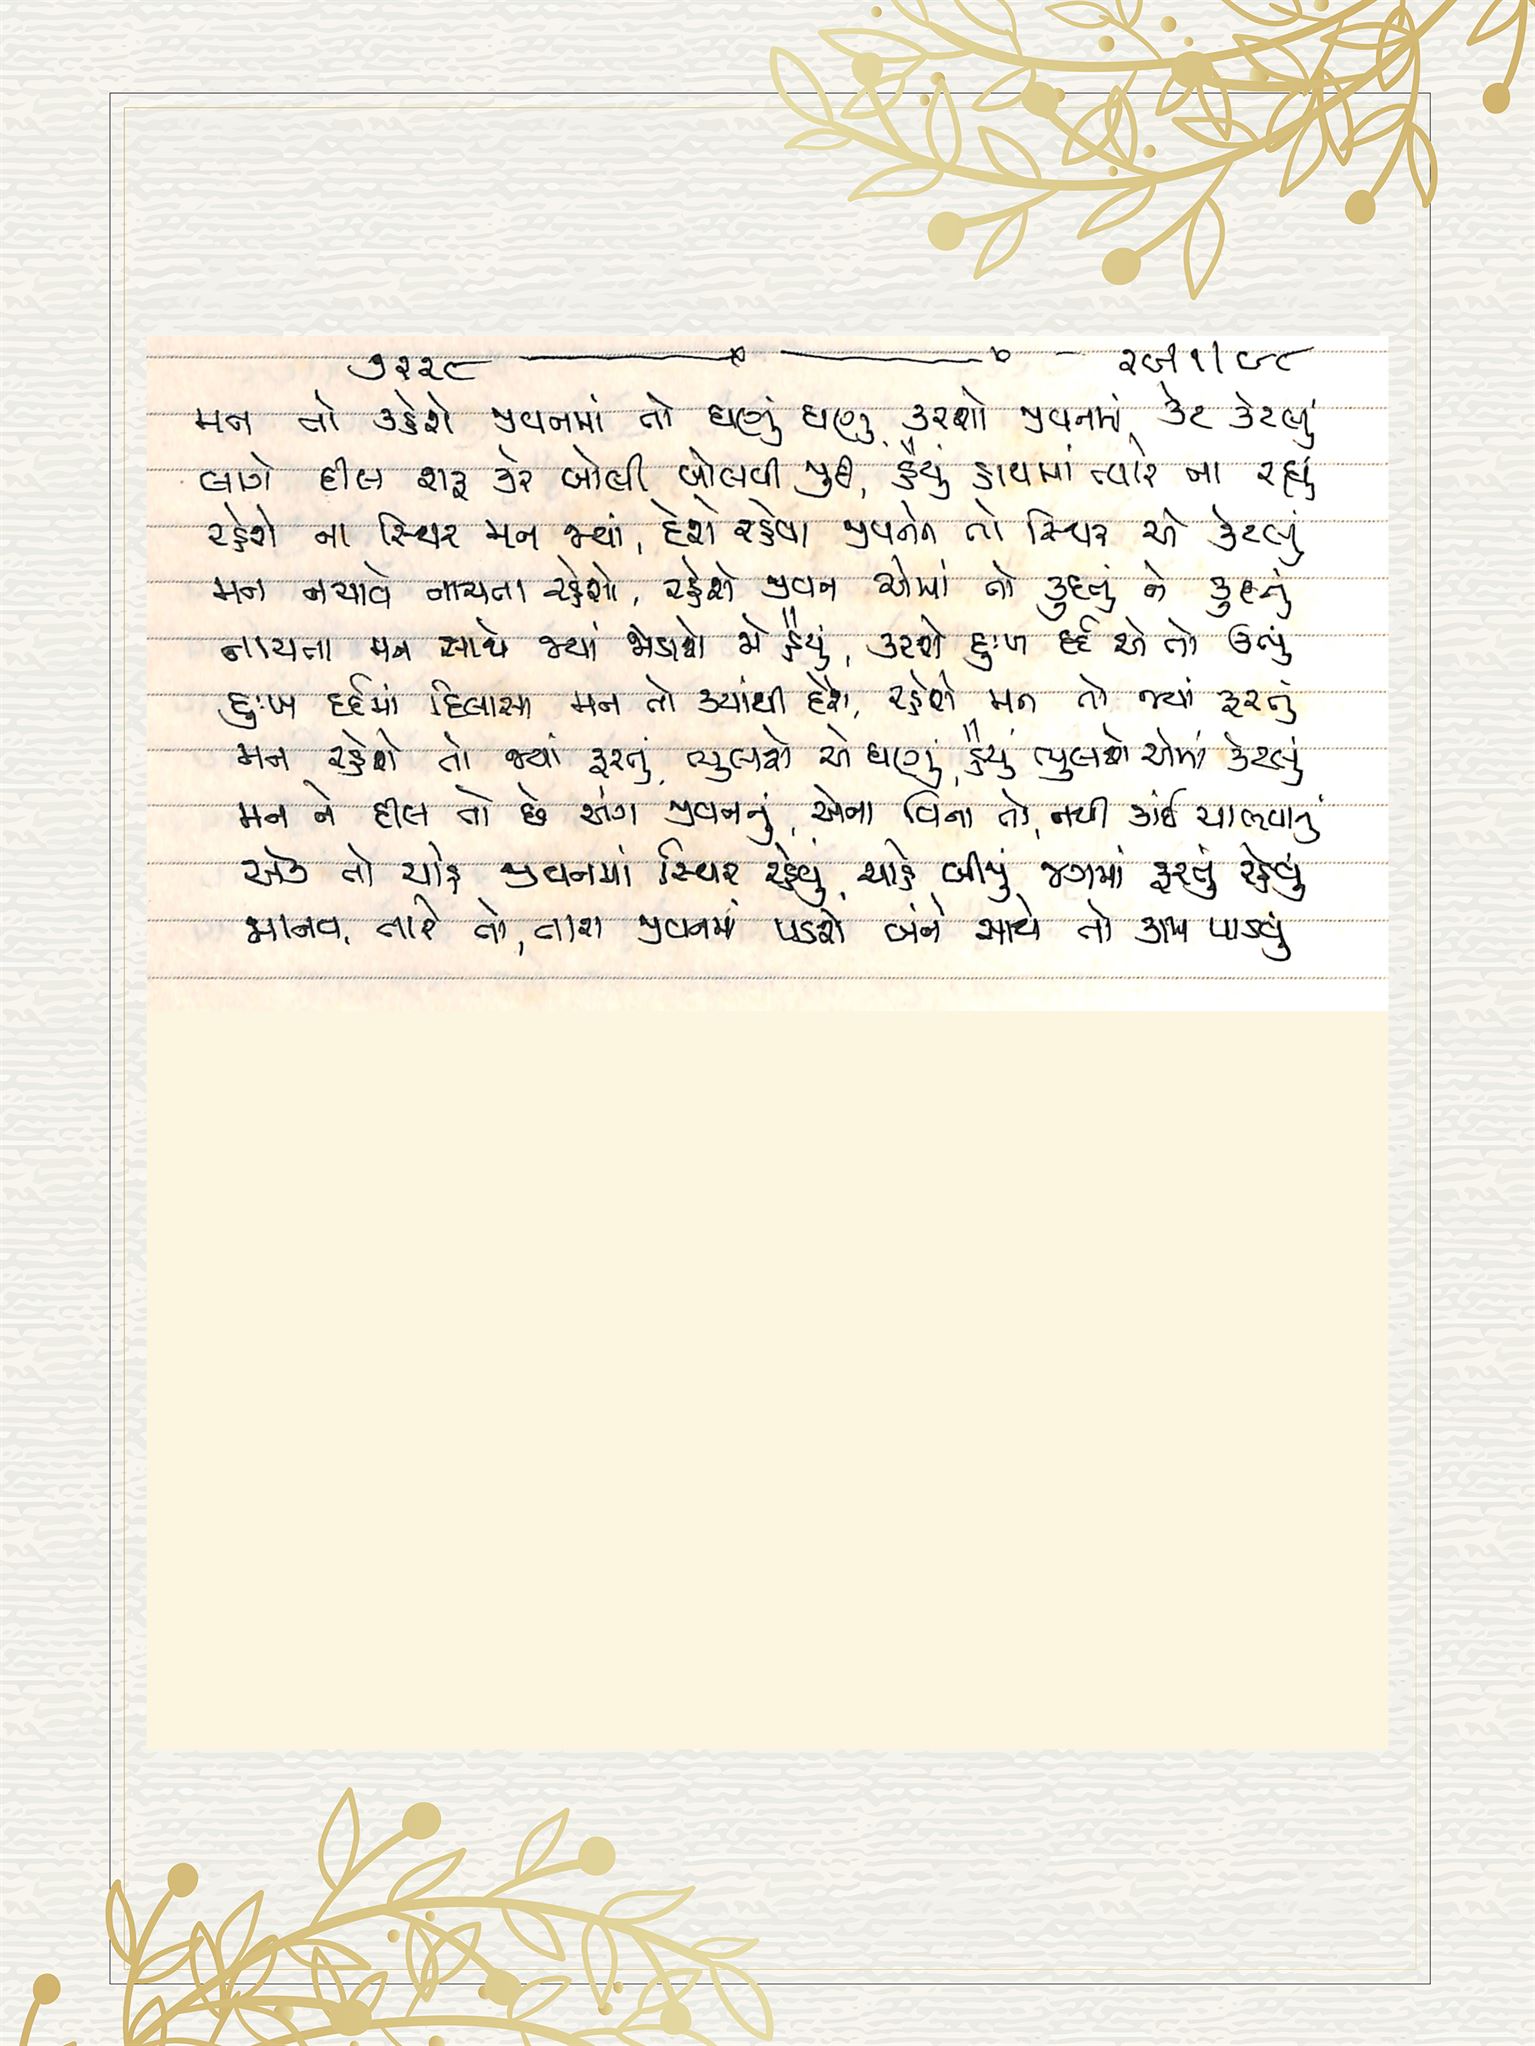 ૭૨૨૮ ૨૯|૧|૯૮
મન તો કહેશે જીવનમાં તો ઘણું ઘણુ, કરશો જીવનમાં કેટ કેટલું
લાગે દીલ શરૂ કરે બોલી બોલવી જુદી, હૈયું હાથમાં ત્યારે ના રહ્યું
રહેશે ના સ્થિર મન જ્યાં, દેશે રહેવા જીવનને તો સ્થિર એ કેટલું
મન નચાવે નાચતા રહેશો, રહેશે જીવન એમાં તો કુદતું ને કુદતું
નાચતા મન સાથે જ્યાં જોડાશે જે હૈયું, કરશે દુઃખ દર્દ એ તો ઉભું
દુઃખ દર્દમાં દિલાસા મન તો ક્યાંથી દેશે, રહેશે મન તો જ્યાં ફરતું
મન રહેશે તો જ્યાં ફરતું, ભુલશે એ ઘણું, હૈયું ભુલશે એમાં કેટલું
મન ને દીલ તો છે અંગ જીવનનું, એના વિના તો, નથી કાંઈ ચાલવાનું
એક તો ચાહે જીવનમાં સ્થિર રહેવું, ચાહે બીજું જગમાં ફરતું રહેવું
માનવ, તારે તો, તારા જીવનમાં પડશે બંને સાથે તો કામ પાડવું